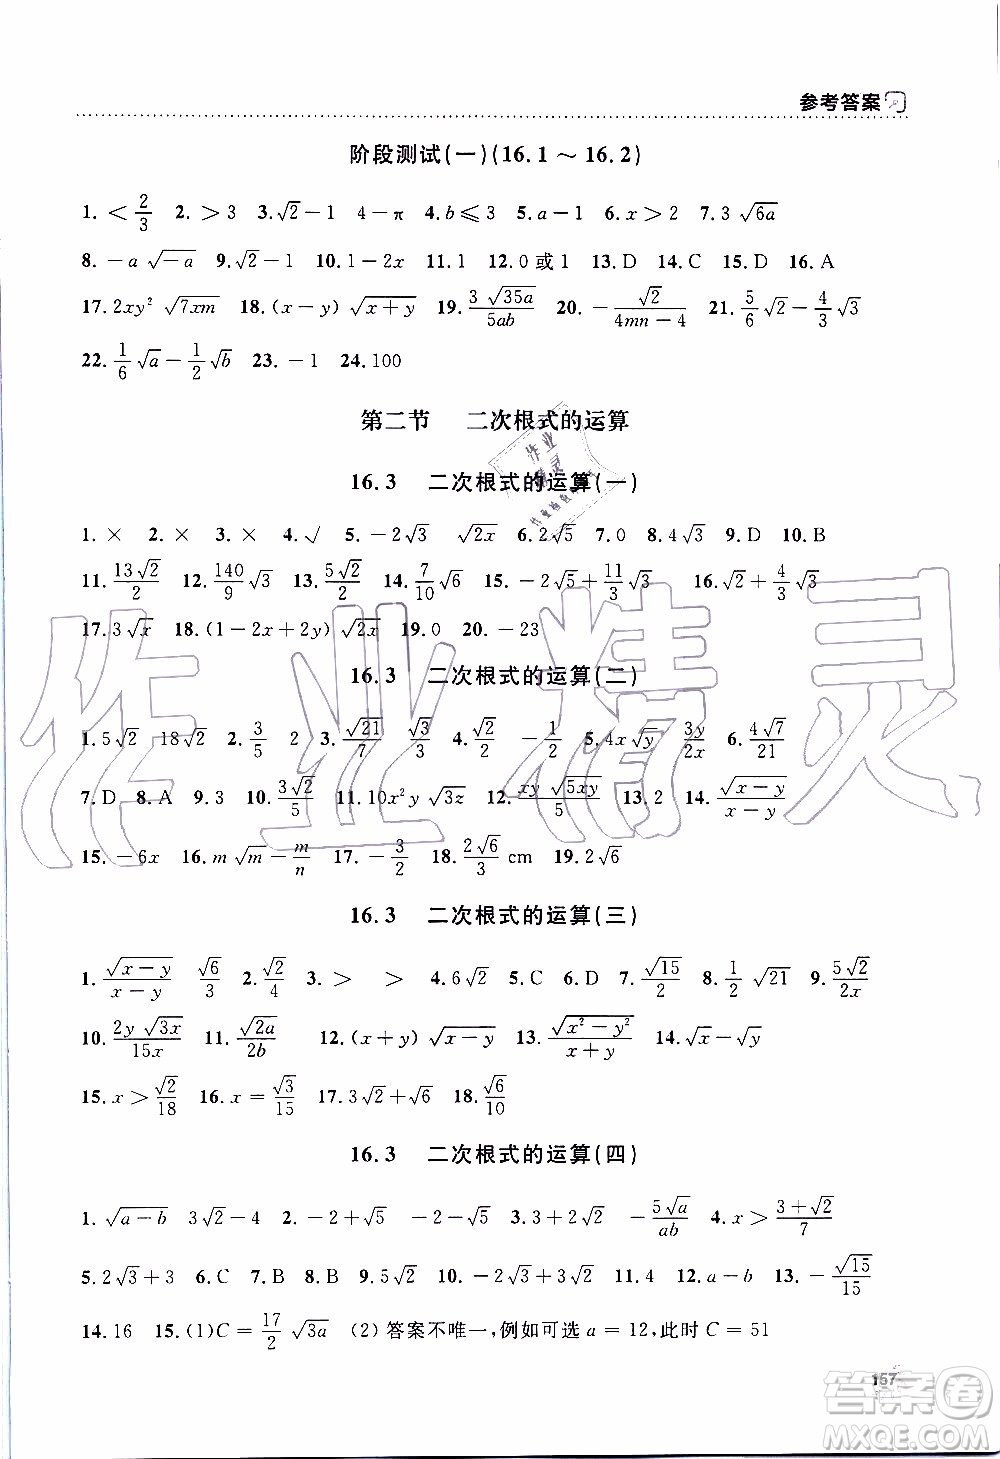 参考答案
阶段测试(一)(16.1～16.2)
1. < 2/3  2. > 3  3. √2 − 1  4 − π  4. b ⩽ 3  5. a − 1  6. x > 2  7. 3√(6a)
8. −a√(−a)  9. √2 − 1  10. 1 − 2x  11. 1  12. 0 或 1  13. D  14. C  15. D  16. A
17. 2xy²√(7xm)  18. (x − y)√(x + y)  19. 3√(35a)/(5ab)  20. −√2/(4mn − 4)  21. 5/6 √2 − 4/3 √3
22. 1/6 √a − 1/2 √b  23. −1  24. 100
第二节 二次根式的运算
16.3 二次根式的运算(一)
1. ×  2. ×  3. ×  4. √  5. −2√3  √(2x)  6. 2√5  7. 0  8. 4√3  9. D  10. B
11. 13√2/2  12. 140/9 √3  13. 5√2/2  14. 7/10 √6  15. −2√5 + 11/3 √3  16. √2 + 4/3 √3
17. 3√x  18. (1 − 2x + 2y)√(2x)  19. 0  20. −23
16.3 二次根式的运算(二)
1. 5√2  18√2  2. 3/5  2  3. √21/7  √3/3  4. √2/2  −1/2  5. 4x√y  3y/2x  6. 4√7/21
7. D  8. A  9. 3  10. 3√2/5  11. 10x²y√(3z)  12. xy√(5xy)/5  13. 2  14. √(x − y)/(x − y)
15. −6x  16. m√m − m/n  17. −3/2  18. 2√6/3 cm  19. 2√6
16.3 二次根式的运算(三)
1. √(x − y)/(x − y)  √6/3  2. √2/4  3. >  >  4. 6√2  5. C  6. D  7. √15/2  8. 1/2 √21  9. 5√2/2x
10. 2y√(3x)/15x  11. √(2a)/2b  12. (x + y)√(x − y)  13. √(x² − y²)/(x + y)  14. √x − √y
15. x > √2/18  16. x = √3/15  17. 3√2 + √6  18. √6/10
16.3 二次根式的运算(四)
1. √(a − b)  3√2 − 4  2. −2 + √5  −2 − √5  3. 3 + 2√2  −5√a/ab  4. x > (3 + √2)/7
5. 2√3 + 3  6. C  7. B  8. B  9. 5√2  10. −2√3 + 3√2  11. 4  12. a − b  13. −√15/15
14. 16  15. (1) C = 17/2 √(3a)  (2) 答案不唯一,例如可选 a = 12,此时 C = 51
157
作业精灵
答案卷
MXQE.COM